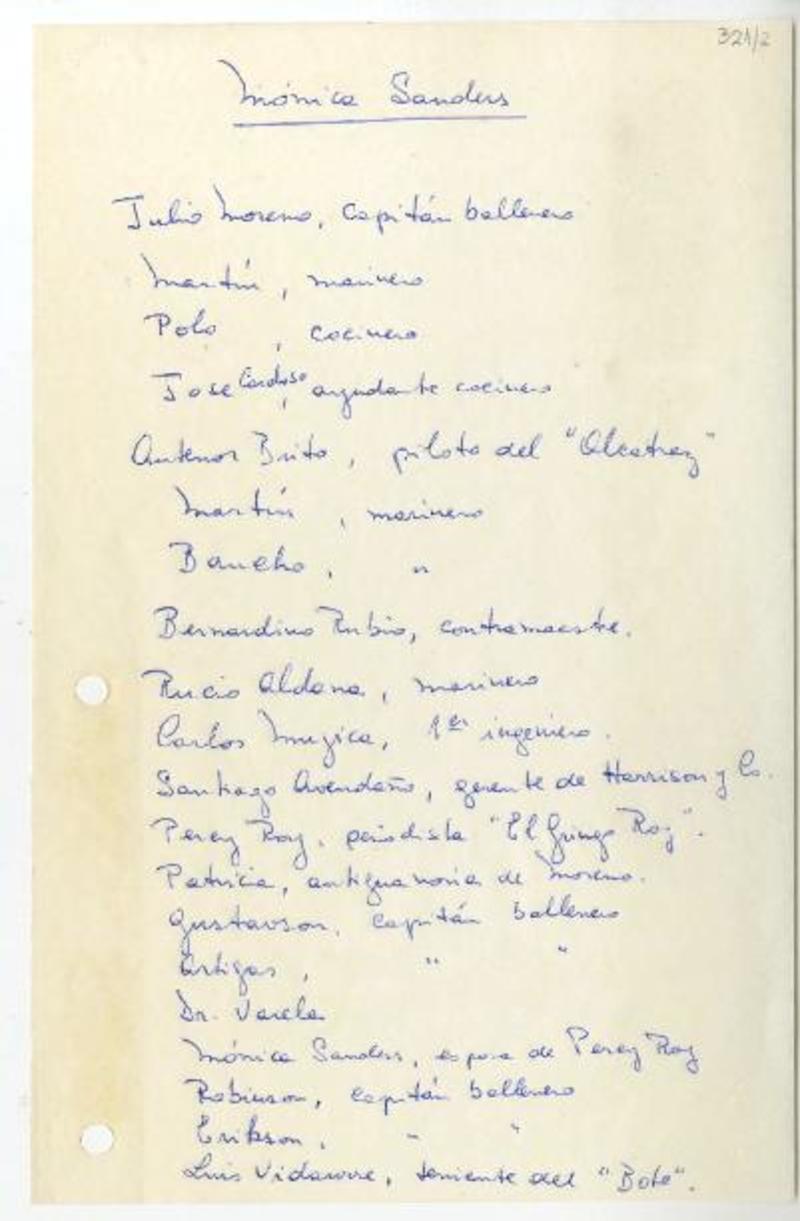 321/2
Mónica Sanders
Julio Moreno, Capitán ballenero
Martín, marinero
Polo, cocinero
José Cardoso, ayudante cocinero
Antenor Brito, piloto del "Alcatraz"
Martín, marinero
Baucho, "
Bernardino Rubio, contramaestre.
Rucio Aldana, marinero
Carlos Muzica, 1er ingeniero.
Santiago Avendaño, gerente de Harrison y Co.
Percy Roy, periodista "El gringo Roy".
Patricia, antigua novia de Moreno.
Gustavson, capitán ballenero
Artigas, " "
Dr. Varela
Mónica Sanders, esposa de Percy Roy
Robinson, capitán ballenero
Erikson, " "
Luis Vidaurre, teniente del "Bote".